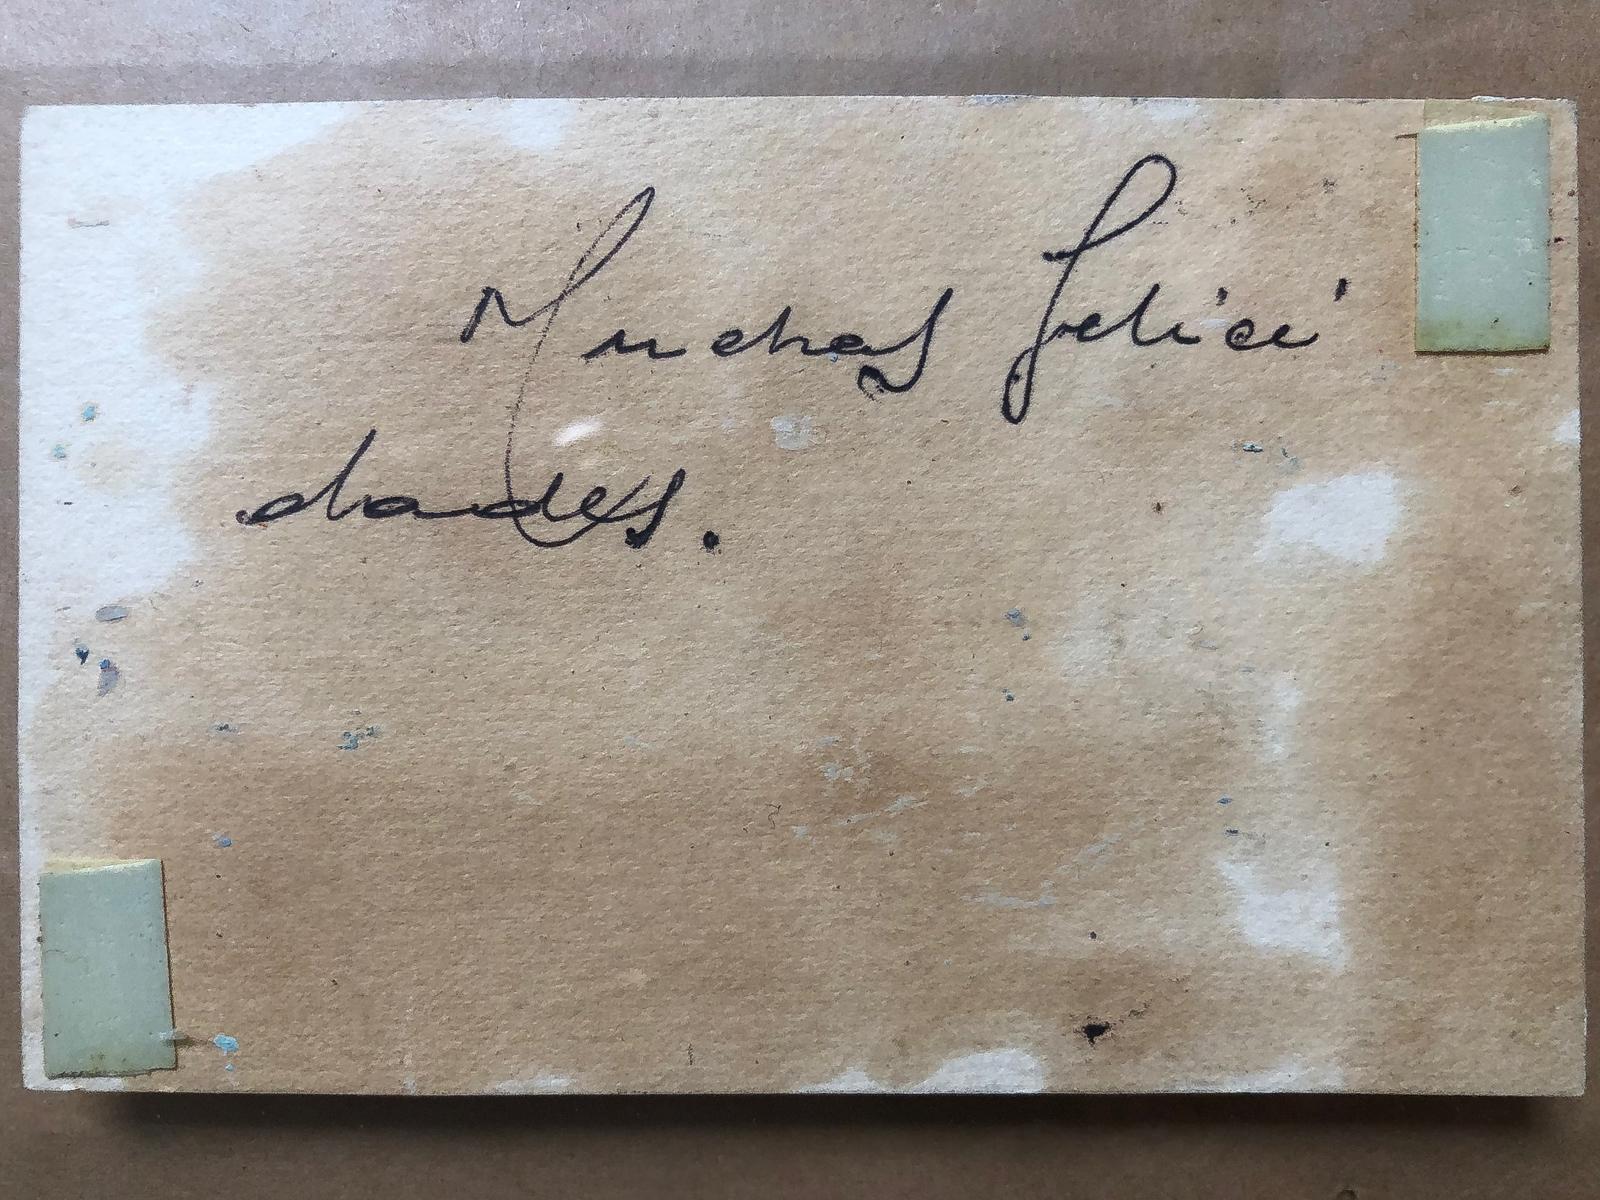 Muchas felici
dades.